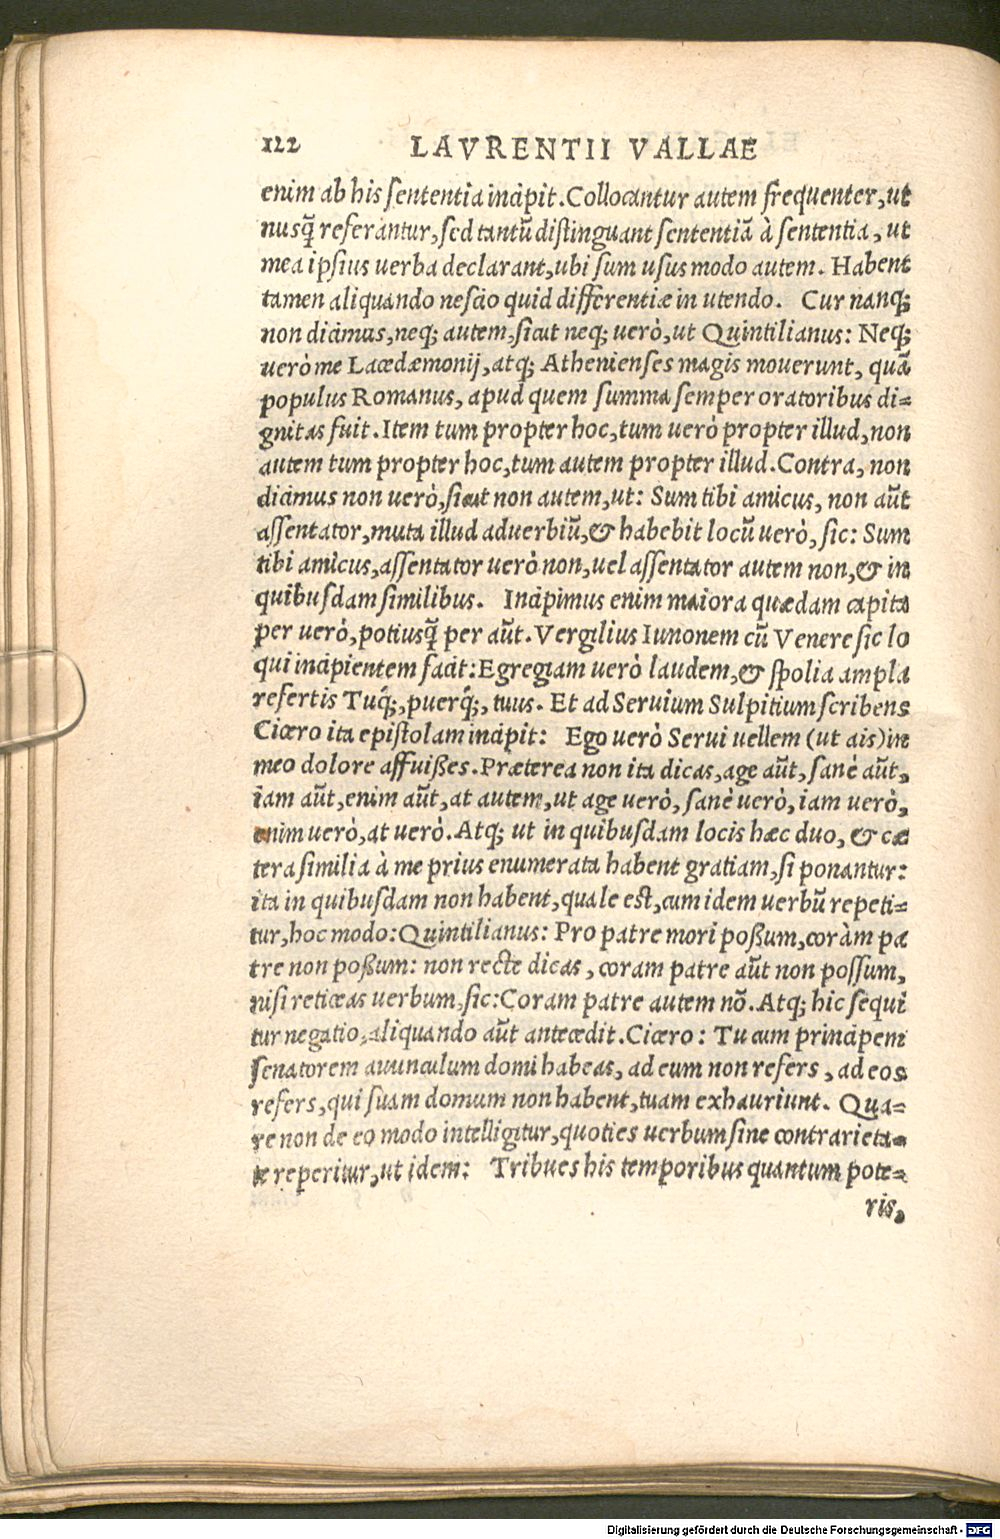 122 LAVRENTII VALLAE
enim ab his sententia incipit. Collocantur autem frequenter, ut
nusq̃ referantur, sed tantũ distinguant sententiã à sententia, ut
mea ipsius uerba declarant, ubi sum usus modo autem. Habent
tamen aliquando nescio quid differentiæ in utendo. Cur nanq;
non dicimus, neq; autem, sicut neq; uerò, ut Quintilianus: Neq;
uerò me Lacedæmonij, atq; Athenienses magis mouerunt, quã
populus Romanus, apud quem summa semper oratoribus di=
gnitas fuit. Item tum propter hoc, tum uerò propter illud, non
autem tum propter hoc, tum autem propter illud. Contra, non
dicimus non uerò, sicut non autem, ut: Sum tibi amicus, non aũt
assentator, muta illud aduerbiũ, & habebit locũ uerò, sic: Sum
tibi amicus, assentator uerò non, uel assentator autem non, & in
quibusdam similibus. Incipimus enim maiora quædam capita
per uerò, potiusq̃ per aũt. Vergilius Iunonem cũ Venere sic lo
qui incipientem facit: Egregiam uerò laudem, & spolia ampla
refertis Tuq́;, puerq́;, tuus. Et ad Seruium Sulpitium scribens
Cicero ita epistolam incipit: Ego uerò Serui uellem (ut ais) in
meo dolore affuißes. Præterea non ita dicas, age aũt, sanè aũt,
iam aũt, enim aũt, at autem, ut age uerò, sanè uerò, iam uerò,
enim uerò, at uerò. Atq; ut in quibusdam locis hæc duo, & cæ
tera similia à me prius enumerata habent gratiam, si ponantur:
ita in quibusdam non habent, quale est, cum idem uerbũ repeti=
tur, hoc modo: Quintilianus: Pro patre mori poßum, coràm pa
tre non poßum: non recte dicas, coram patre aũt non possum,
nisi reticeas uerbum, sic: Coram patre autem nõ. Atq; hic sequi
tur negatio, aliquando aũt antecedit. Cicero: Tu cum principem
senatorem auunculum domi habeas, ad eum non refers, ad eos
refers, qui suam domum non habent, tuam exhauriunt. Qua=
re non de eo modo intelligitur, quoties uerbum sine contrarieta=
te reperitur, ut idem: Tribues his temporibus quantum pote=
ris,
Digitalisierung gefördert durch die Deutsche Forschungsgemeinschaft - DFG